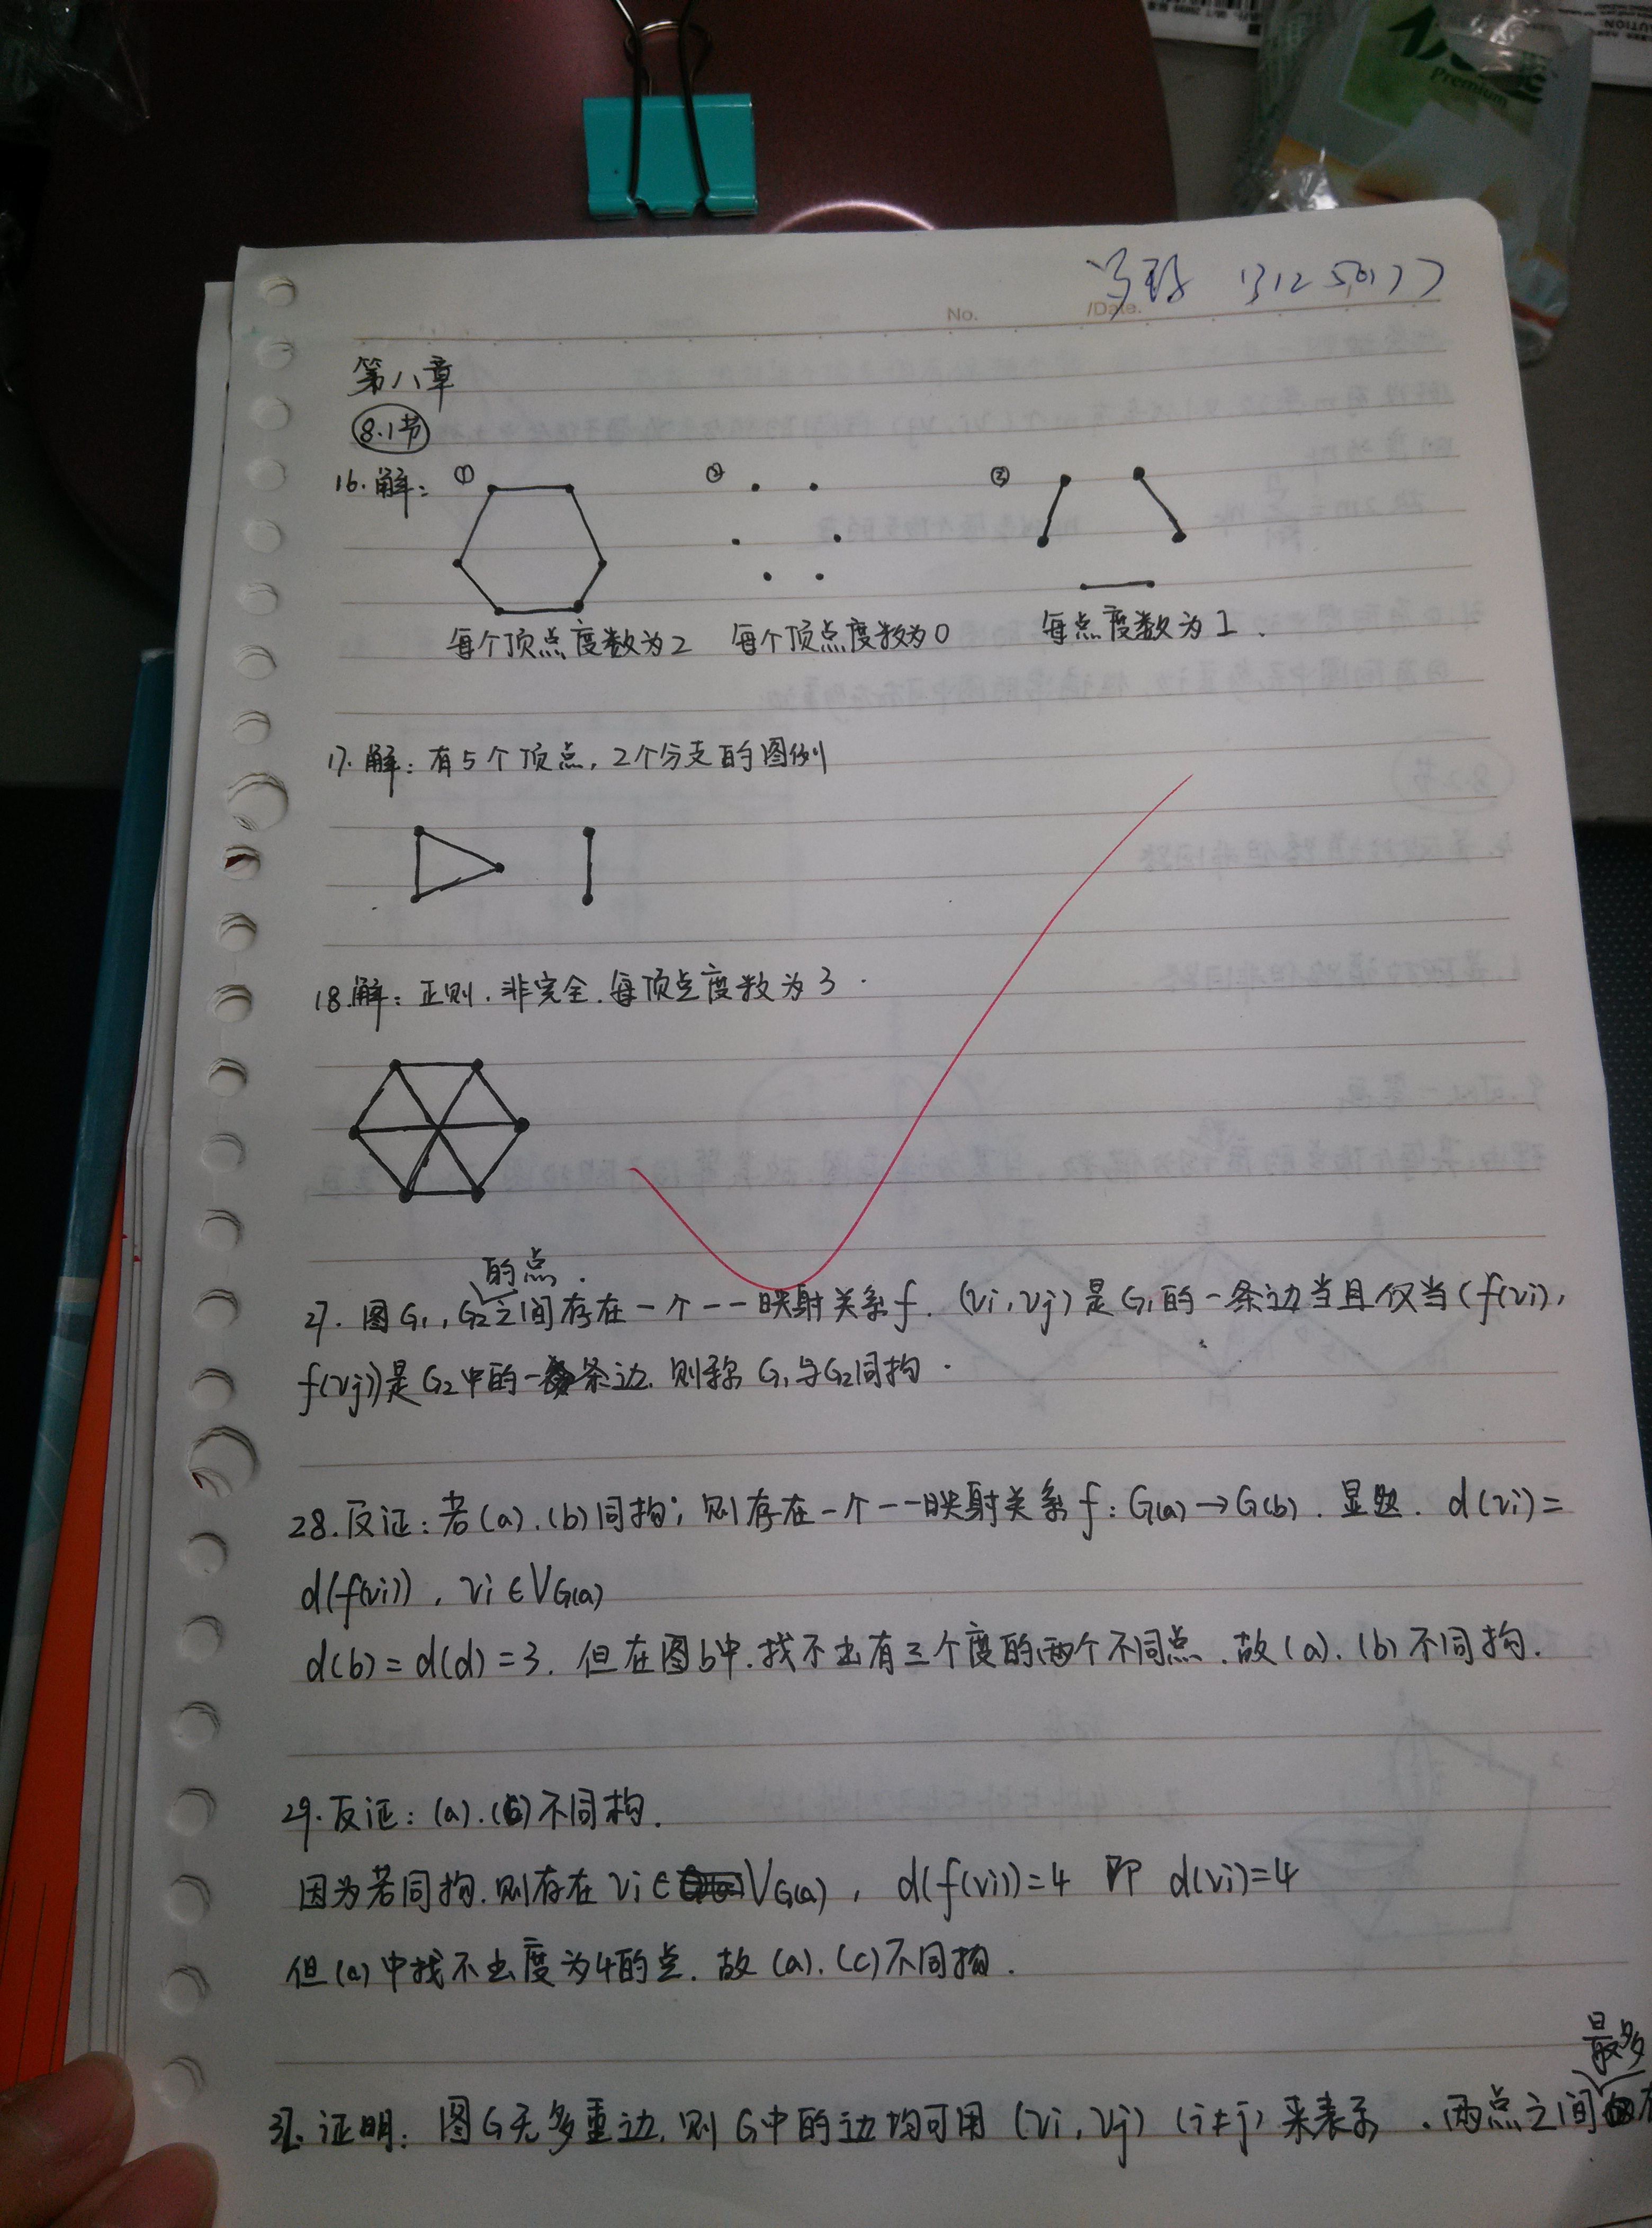 Premium
No.
/Date.
13125017
第八章
8.1节
16.解: ① ② ③
每个顶点度数为2 每个顶点度数为0 每点度数为1.
17.解: 有5个顶点, 2个分支的图例
18.解: 正则. 非完全. 每顶点度数为3.
的点.
27. 图G1, G2之间存在一个一一映射关系f. (vi, vj)是G1的一条边当且仅当(f(vi),
f(vj))是G2中的一条边. 则称G1与G2同构.
28.反证: 若(a).(b)同构; 则存在一个一一映射关系f: G(a)→G(b). 显然. d(vi)=
d(f(vi)), vi∈VG(a)
d(b)=d(d)=3. 但在图b中.找不出有三个度的两个不同点.故(a).(b)不同构.
29.反证: (a).(c)不同构.
因为若同构.则存在vi∈VG(a), d(f(vi))=4 即 d(vi)=4
但(a)中找不出度为4的点. 故(a).(c)不同构.
最多
证明: 图G无多重边. 则G中的边均可用(vi, vj) (i≠j)来表示. 两点之间有